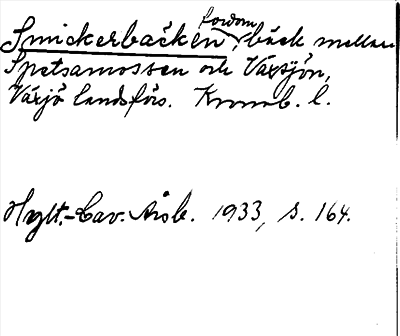 Smickerbäcken, fordom bäck mellan
Spetsamossen och Växsjön,
Växjö landsförs. Kronob. l.
Hylt.-Cav. Årsb. 1933, s. 164.